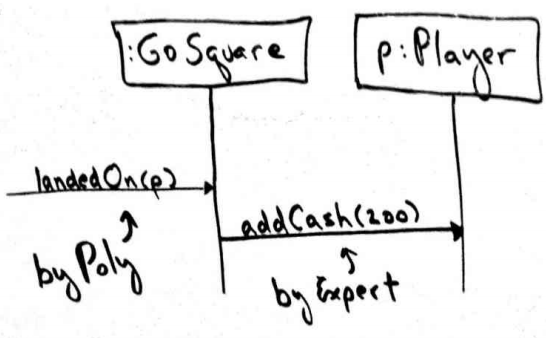 :GoSquare
p:Player
landedOn(p)
by Poly
addCash(200)
by Expert